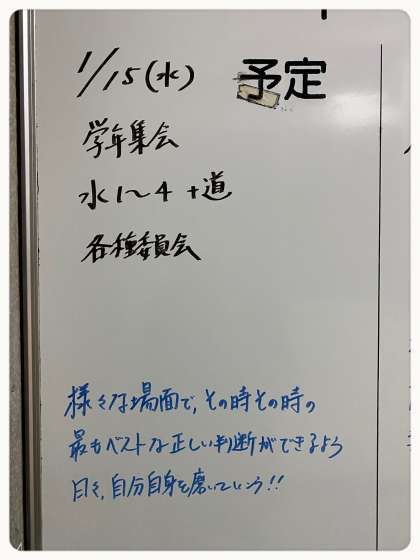 1/15(水) 予定
学年集会
水1~4 +道
各種委員会
様々な場面で、その時その時の
最もベストな正しい判断ができるよう
日々、自分自身を磨いていこう!!